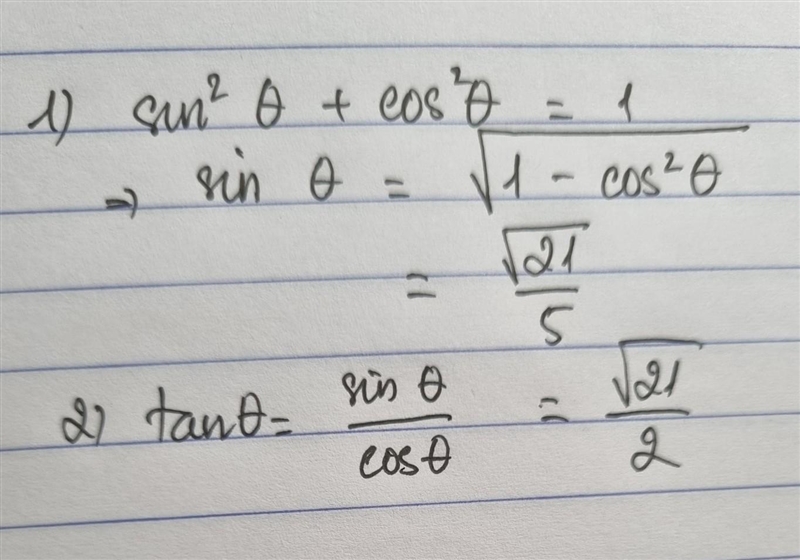 1) sin² θ + cos²θ = 1
⇒ sin θ = √(1 - cos²θ)
= √21/5
2) tanθ = sinθ/cosθ = √21/2